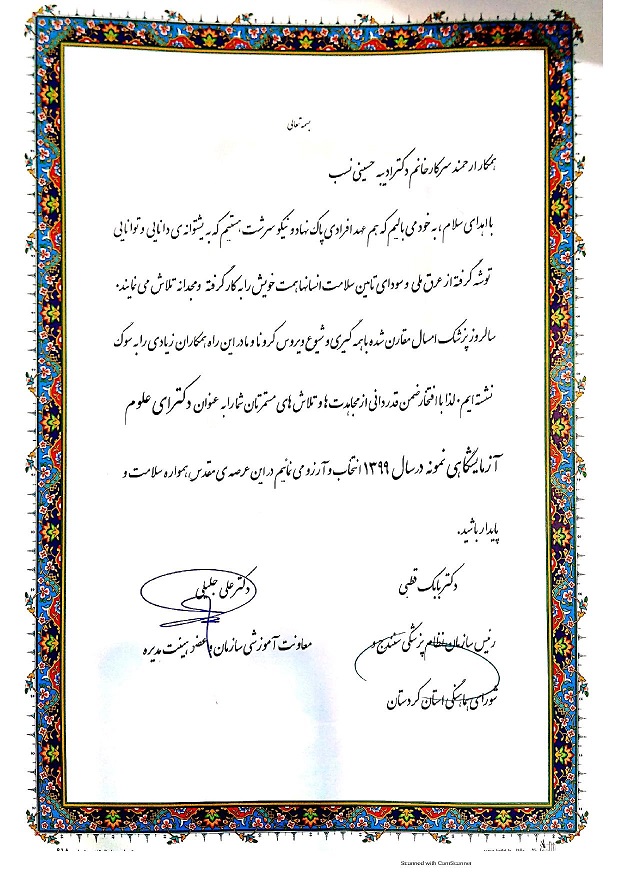 بسمه تعالی
همکار ارجمند سرکار خانم دکتر ادیبه حسینی نسب
با اهدای سلام، به خود می بالیم که هم عهد افرادی پاک نهاد و نیکو سرشت هستیم که به پشتوانه ی دانایی و توانایی
توشه گرفته از عرق ملی و سودای تامین سلامت انسانها همت خویش را به کار گرفته و مجدانه تلاش می نمایند.
سالروز پزشک امسال مقارن شده با همه گیری و شیوع ویروس کرونا و ما در این راه همکاران زیادی را به سوک
نشسته ایم. لذا با افتخار ضمن قدردانی از مجاهدت ها و تلاش های مستمرتان شما را به عنوان دکترای علوم
آزمایشگاهی نمونه در سال ۱۳۹۹ انتخاب و آرزو می نمایم در این عرصه ی مقدس همواره سلامت و
پایدار باشید.
دکتر بابک قطبی
دکتر علی جلیلی
رئیس سازمان نظام پزشکی سنندج و
معاونت آموزشی سازمان و عضو هیئت مدیره
شورای هماهنگی استان کردستان
Scanned with CamScanner